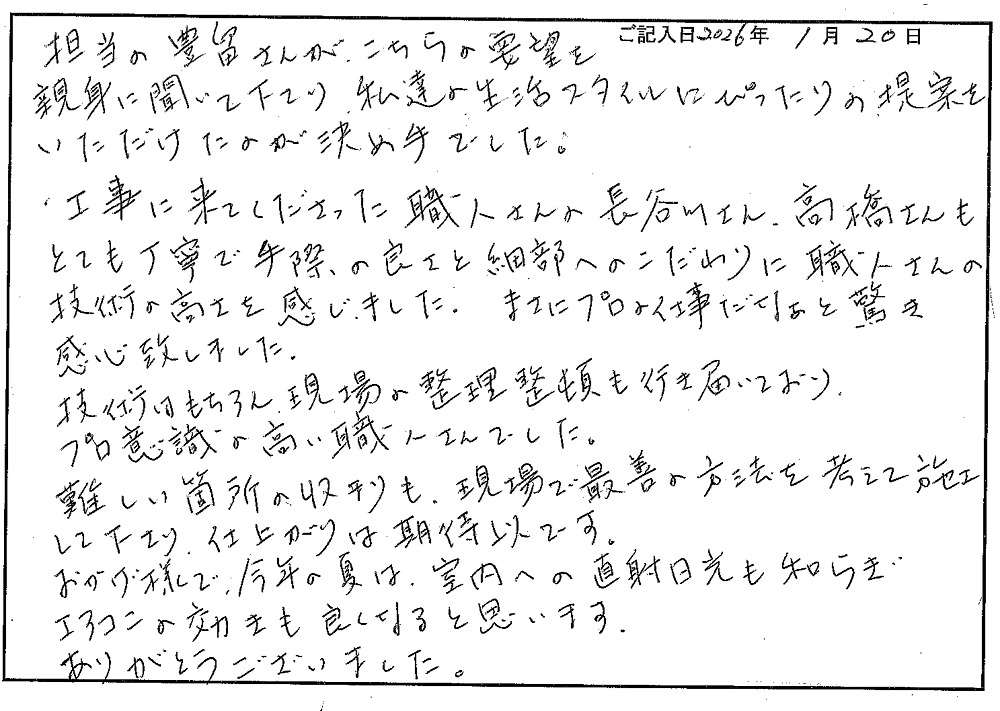 ご記入日2026年 1月20日
担当の豊留さんが、こちらの要望を
親身に聞いて下さり 私達の生活スタイルにぴったりの提案を
いただけたのが決め手でした。
・工事に来てくださった職人さんの長谷川さん、高橋さんも
とても丁寧で手際の良さと細部へのこだわりに職人さんの
技術の高さを感じました. まさにプロの仕事だなぁと驚き
感心致しました.
技術はもちろん 現場の整理整頓も行き届いており、
プロ意識の高い職人さんでした。
難しい箇所の収まりも、現場で最善の方法を考えて施工
して下さり、仕上がりは期待以です。
おかげ様で、今年の夏は、室内への直射日光も和らぎ
エアコンの効きも良くなると思います.
ありがとうございました。